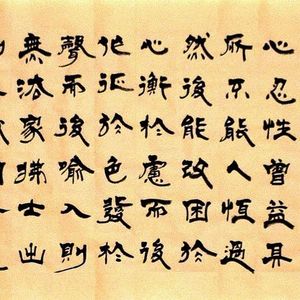 心忍性曾益其
所不能人恆過
然後能改困於
心衡於慮而後
作征於色發於
聲而後喻入則
無法家拂士出